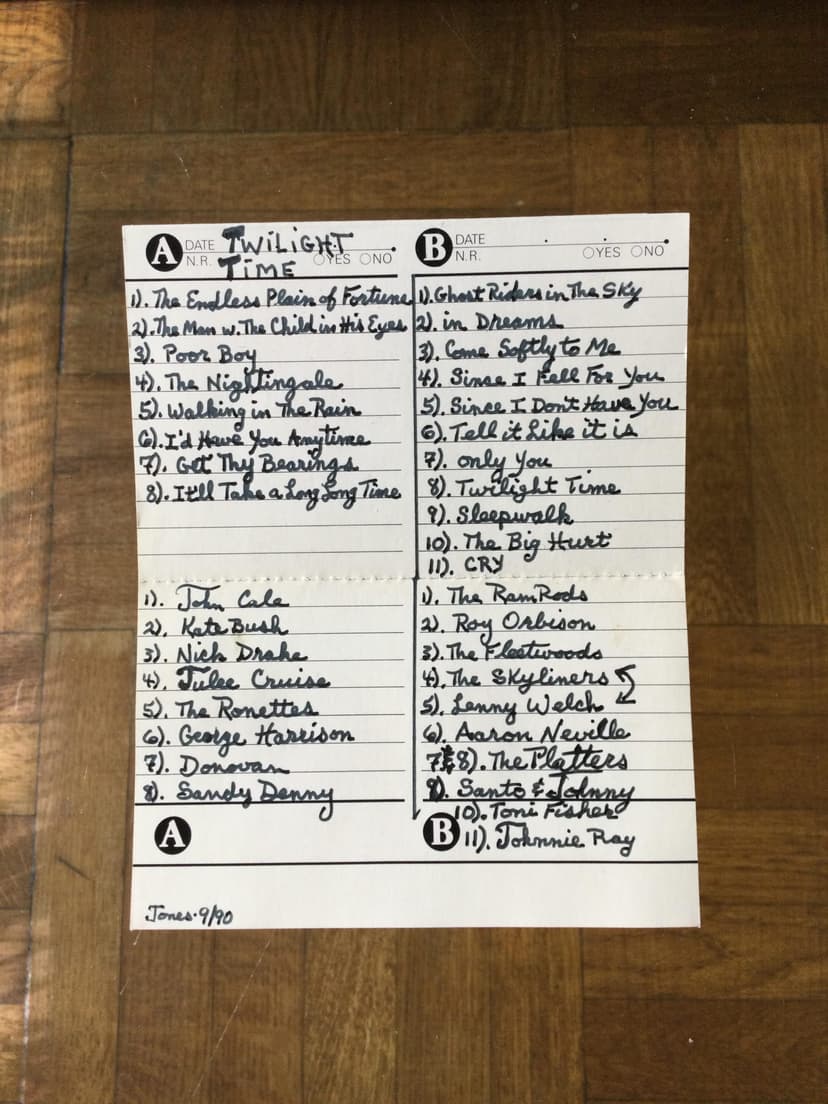 A DATE TWILIGHT
N.R. TIME YES NO
1). The Endless Plain of Fortune
2). The Man w. The Child in His Eyes
3). Poor Boy
4). The Nightingale
5). Walking in The Rain
6). I'd Have You Anytime
7). Get Thy Bearings
8). It'll Take a Long Long Time
1). John Cale
2). Kate Bush
3). Nick Drake
4). Julee Cruise
5). The Ronettes
6). George Harrison
7). Donovan
8). Sandy Denny
A
Jones·9/90
B DATE
N.R. YES NO
1). Ghost Riders in The Sky
2). in Dreams
3). Come Softly to Me
4). Since I Fell For You
5). Since I Don't Have You
6). Tell it Like it is
7). only You
8). Twilight Time
9). Sleepwalk
10). The Big Hurt
11). CRY
1). The RamRods
2). Roy Orbison
3). The Fleetwoods
4). The Skyliners
5). Lenny Welch
6). Aaron Neville
7 & 8). The Platters
9). Santo & Johnny
10). Toni Fisher
B 11). Johnnie Ray